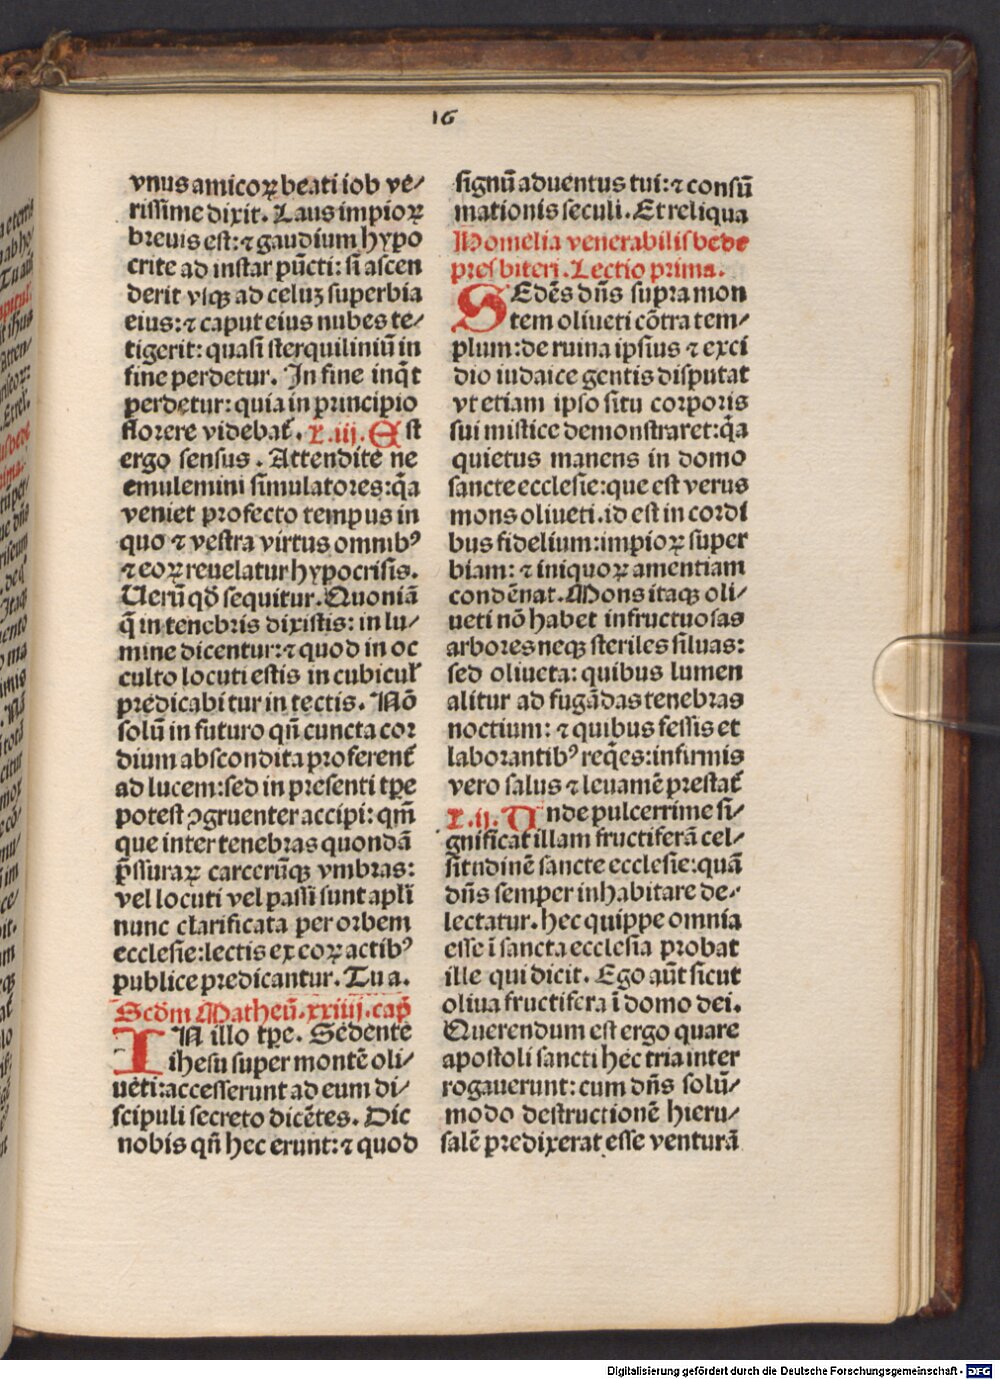 16
vnus amicoꝝ beati iob ve⸗
rissime dixit. Laus impioꝝ
breuis est: ⁊ gaudium hypo
crite ad instar pũcti: si ascen
derit vsqꝫ ad celuꝫ superbia
eius: ⁊ caput eius nubes te⸗
tigerit: quasi sterquiliniũ in
fine perdetur. In fine inq̃t
perdetur: quia in principio
florere videbat̃. L.iij. Est
ergo sensus. Attendite ne
emulemini simulatores: q̃a
veniet profecto tempus in
quo ⁊ vestra virtus omnibꝰ
⁊ eoꝝ reuelatur hypocrisis.
Uerũ qd̃ sequitur. Quoniã
q̃ in tenebris dixistis: in lu⸗
mine dicentur: ⁊ quod in oc
culto locuti estis in cubicul̃
predicabitur in tectis. Nõ
solũ in futuro qñ cuncta cor
dium abscondita proferent̃
ad lucem: sed in presenti tp̃e
potest ꝯgruenter accipi: qm̃
que inter tenebras quondã
p̃ssuraꝝ carcerũqꝫ vmbras:
vel locuti vel passi sunt apl̃i
nunc clarificata per orbem
ecclesie: lectis ex eoꝝ actibꝰ
publice predicantur. Tu a.
Scd̃m Matheũ. xxiiij. cap̃
IN illo tp̃e. Sedente
ihesu super montẽ oli⸗
ueti: accesserunt ad eum di⸗
scipuli secreto dicẽtes. Dic
nobis qñ hec erunt: ⁊ quod
signũ aduentus tui: ⁊ consũ
mationis seculi. Et reliqua
Homelia venerabilis bede
presbiteri. Lectio prima.
SEdẽs dñs supra mon
tem oliueti cõtra tem⸗
plum: de ruina ipsius ⁊ exci
dio iudaice gentis disputat
vt etiam ipso situ corporis
sui mistice demonstraret: q̃a
quietus manens in domo
sancte ecclesie: que est verus
mons oliueti. id est in cordi
bus fidelium: impioꝝ super
biam: ⁊ iniquoꝝ amentiam
condẽnat. Mons itaqꝫ oli⸗
ueti nõ habet infructuosas
arbores neqꝫ steriles siluas:
sed oliueta: quibus lumen
alitur ad fugãdas tenebras
noctium: ⁊ quibus fessis et
laborantibꝰ req̃es: infirmis
vero salus ⁊ leuamẽ prestat̃
L.ij. Unde pulcerrime si⸗
gnificat illam fructiferã cel⸗
situdinẽ sancte ecclesie: quã
dñs semper inhabitare de⸗
lectatur. hec quippe omnia
esse ĩ sancta ecclesia probat
ille qui dicit. Ego aũt sicut
oliua fructifera ĩ domo dei.
Querendum est ergo quare
apostoli sancti hec tria inter
rogauerunt: cum dñs solũ⸗
modo destructionẽ hieru⸗
salẽ predixerat esse venturã
Digitalisierung gefördert durch die Deutsche Forschungsgemeinschaft - DFG